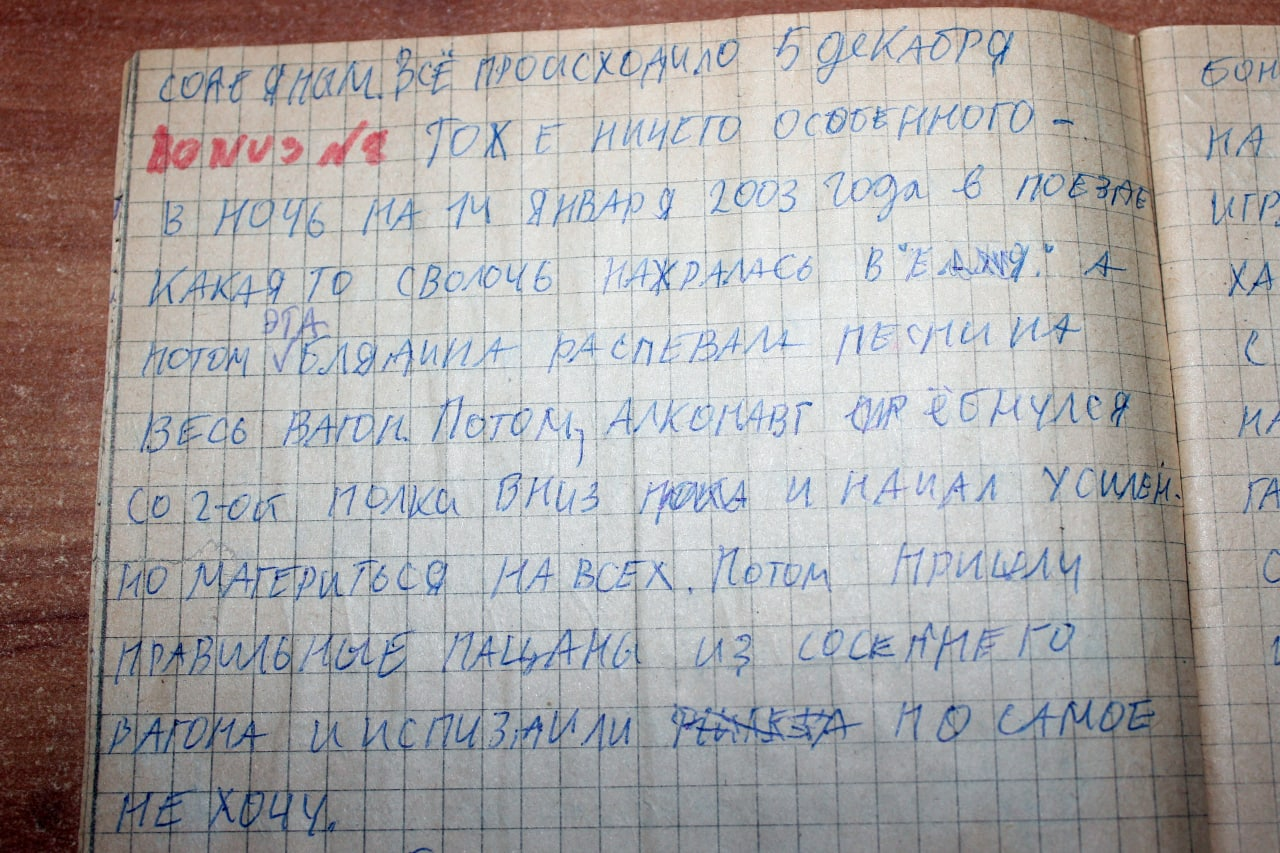 СОДЕЯНЫМ. ВСЁ ПРОИСХОДИЛО 5 ДЕКАБРЯ
BONUS №2 ТОЖЕ НИЧЕГО ОСОБЕННОГО -
В НОЧЬ НА 14 ЯНВАРЯ 2003 года в ПОЕЗДЕ
КАКАЯ ТО СВОЛОЧЬ НАЖРАЛАСЬ В А
ЭТА
ПОТОМ √ БЛЯДИНА РАСПЕВАЛА ПЕСНИ НА
ВЕСЬ ВАГОН. ПОТОМ, АЛКОНАВТ ЁБНУЛСЯ
СО 2-ой ПОЛКИ ВНИЗ И НАЧАЛ УСИЛЕН-
НО МАТЕРИТЬСЯ НА ВСЕХ. ПОТОМ ПРИШЛИ
ПРАВИЛЬНЫЕ ПАЦАНЫ ИЗ СОСЕДНЕГО
ВАГОНА И ИСПИЗДИЛИ ПО САМОЕ
НЕ ХОЧУ.
БОН
НА
ИГР
ХА
С
НА
ГА